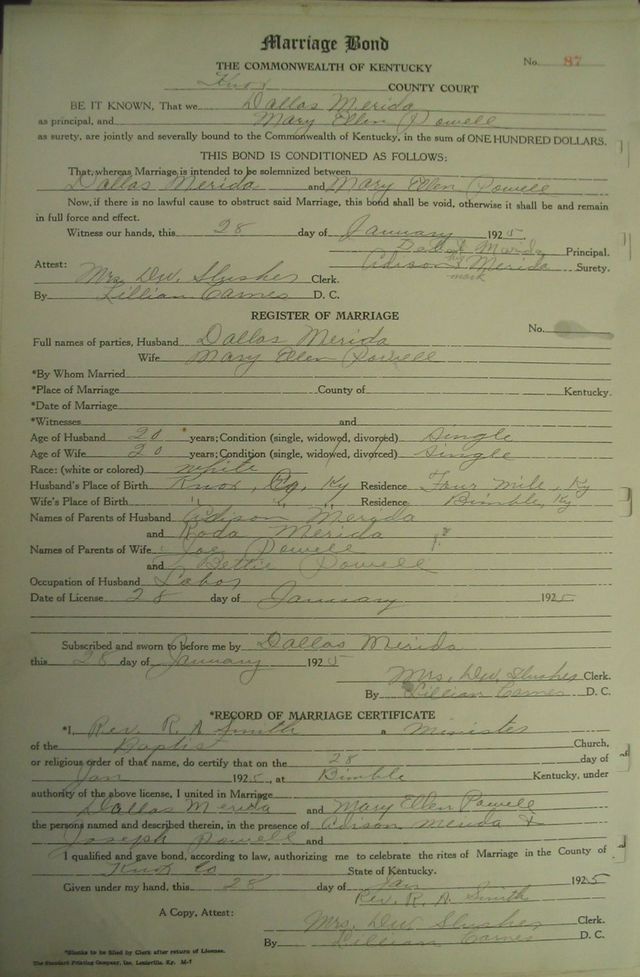 Marriage Bond
No. 87
THE COMMONWEALTH OF KENTUCKY
Knox COUNTY COURT
BE IT KNOWN, That we Dallas Merida
as principal, and Mary Ellen Powell
as surety, are jointly and severally bound to the Commonwealth of Kentucky, in the sum of ONE HUNDRED DOLLARS.
THIS BOND IS CONDITIONED AS FOLLOWS:
That, whereas Marriage is intended to be solemnized between
Dallas Merida and Mary Ellen Powell
Now, if there is no lawful cause to obstruct said Marriage, this bond shall be void, otherwise it shall be and remain
in full force and effect.
Witness our hands, this 28 day of January 1925.
Merida Principal.
Adison X Merida Surety.
mark
Attest: Mrs. DW. Slusher Clerk.
By Lillian Carnes D. C.
REGISTER OF MARRIAGE
No.
Full names of parties, Husband Dallas Merida
Wife Mary Ellen Powell
*By Whom Married
*Place of Marriage County of Kentucky.
*Date of Marriage
*Witnesses and
Age of Husband 20 years; Condition (single, widowed, divorced) Single
Age of Wife 20 years; Condition (single, widowed, divorced) Single
Race: (white or colored) white
Husband's Place of Birth Knox Co, Ky Residence Four Mile, Ky
Wife's Place of Birth " " " Residence Bimble, Ky
Names of Parents of Husband Adison Merida
and Roda Merida
Names of Parents of Wife Joe Powell
and Bettie Powell
Occupation of Husband Labor
Date of License 28 day of January 1925
Subscribed and sworn to before me by Dallas Merida
this 28 day of January 1925
Mrs. DW Slusher Clerk.
By Lillian Carnes D. C.
*RECORD OF MARRIAGE CERTIFICATE
*I, Rev. R. A Smith a Minister
of the Baptist Church,
or religious order of that name, do certify that on the 28 day of
Jan 1925, at Bimble Kentucky, under
authority of the above license, I united in Marriage
Dallas Merida and Mary Ellen Powell
the persons named and described therein, in the presence of Adison Merida &
Joseph Powell and
I qualified and gave bond, according to law, authorizing me to celebrate the rites of Marriage in the County of
Knox Co State of Kentucky.
Given under my hand, this 28 day of Jan 1925
Rev. R. A. Smith
A Copy, Attest: Mrs. DW Slusher Clerk.
By Lillian Carnes D. C.
*Blanks to be filed by Clerk after return of License.
The Standard Printing Company, Inc. Louisville, Ky. M-7